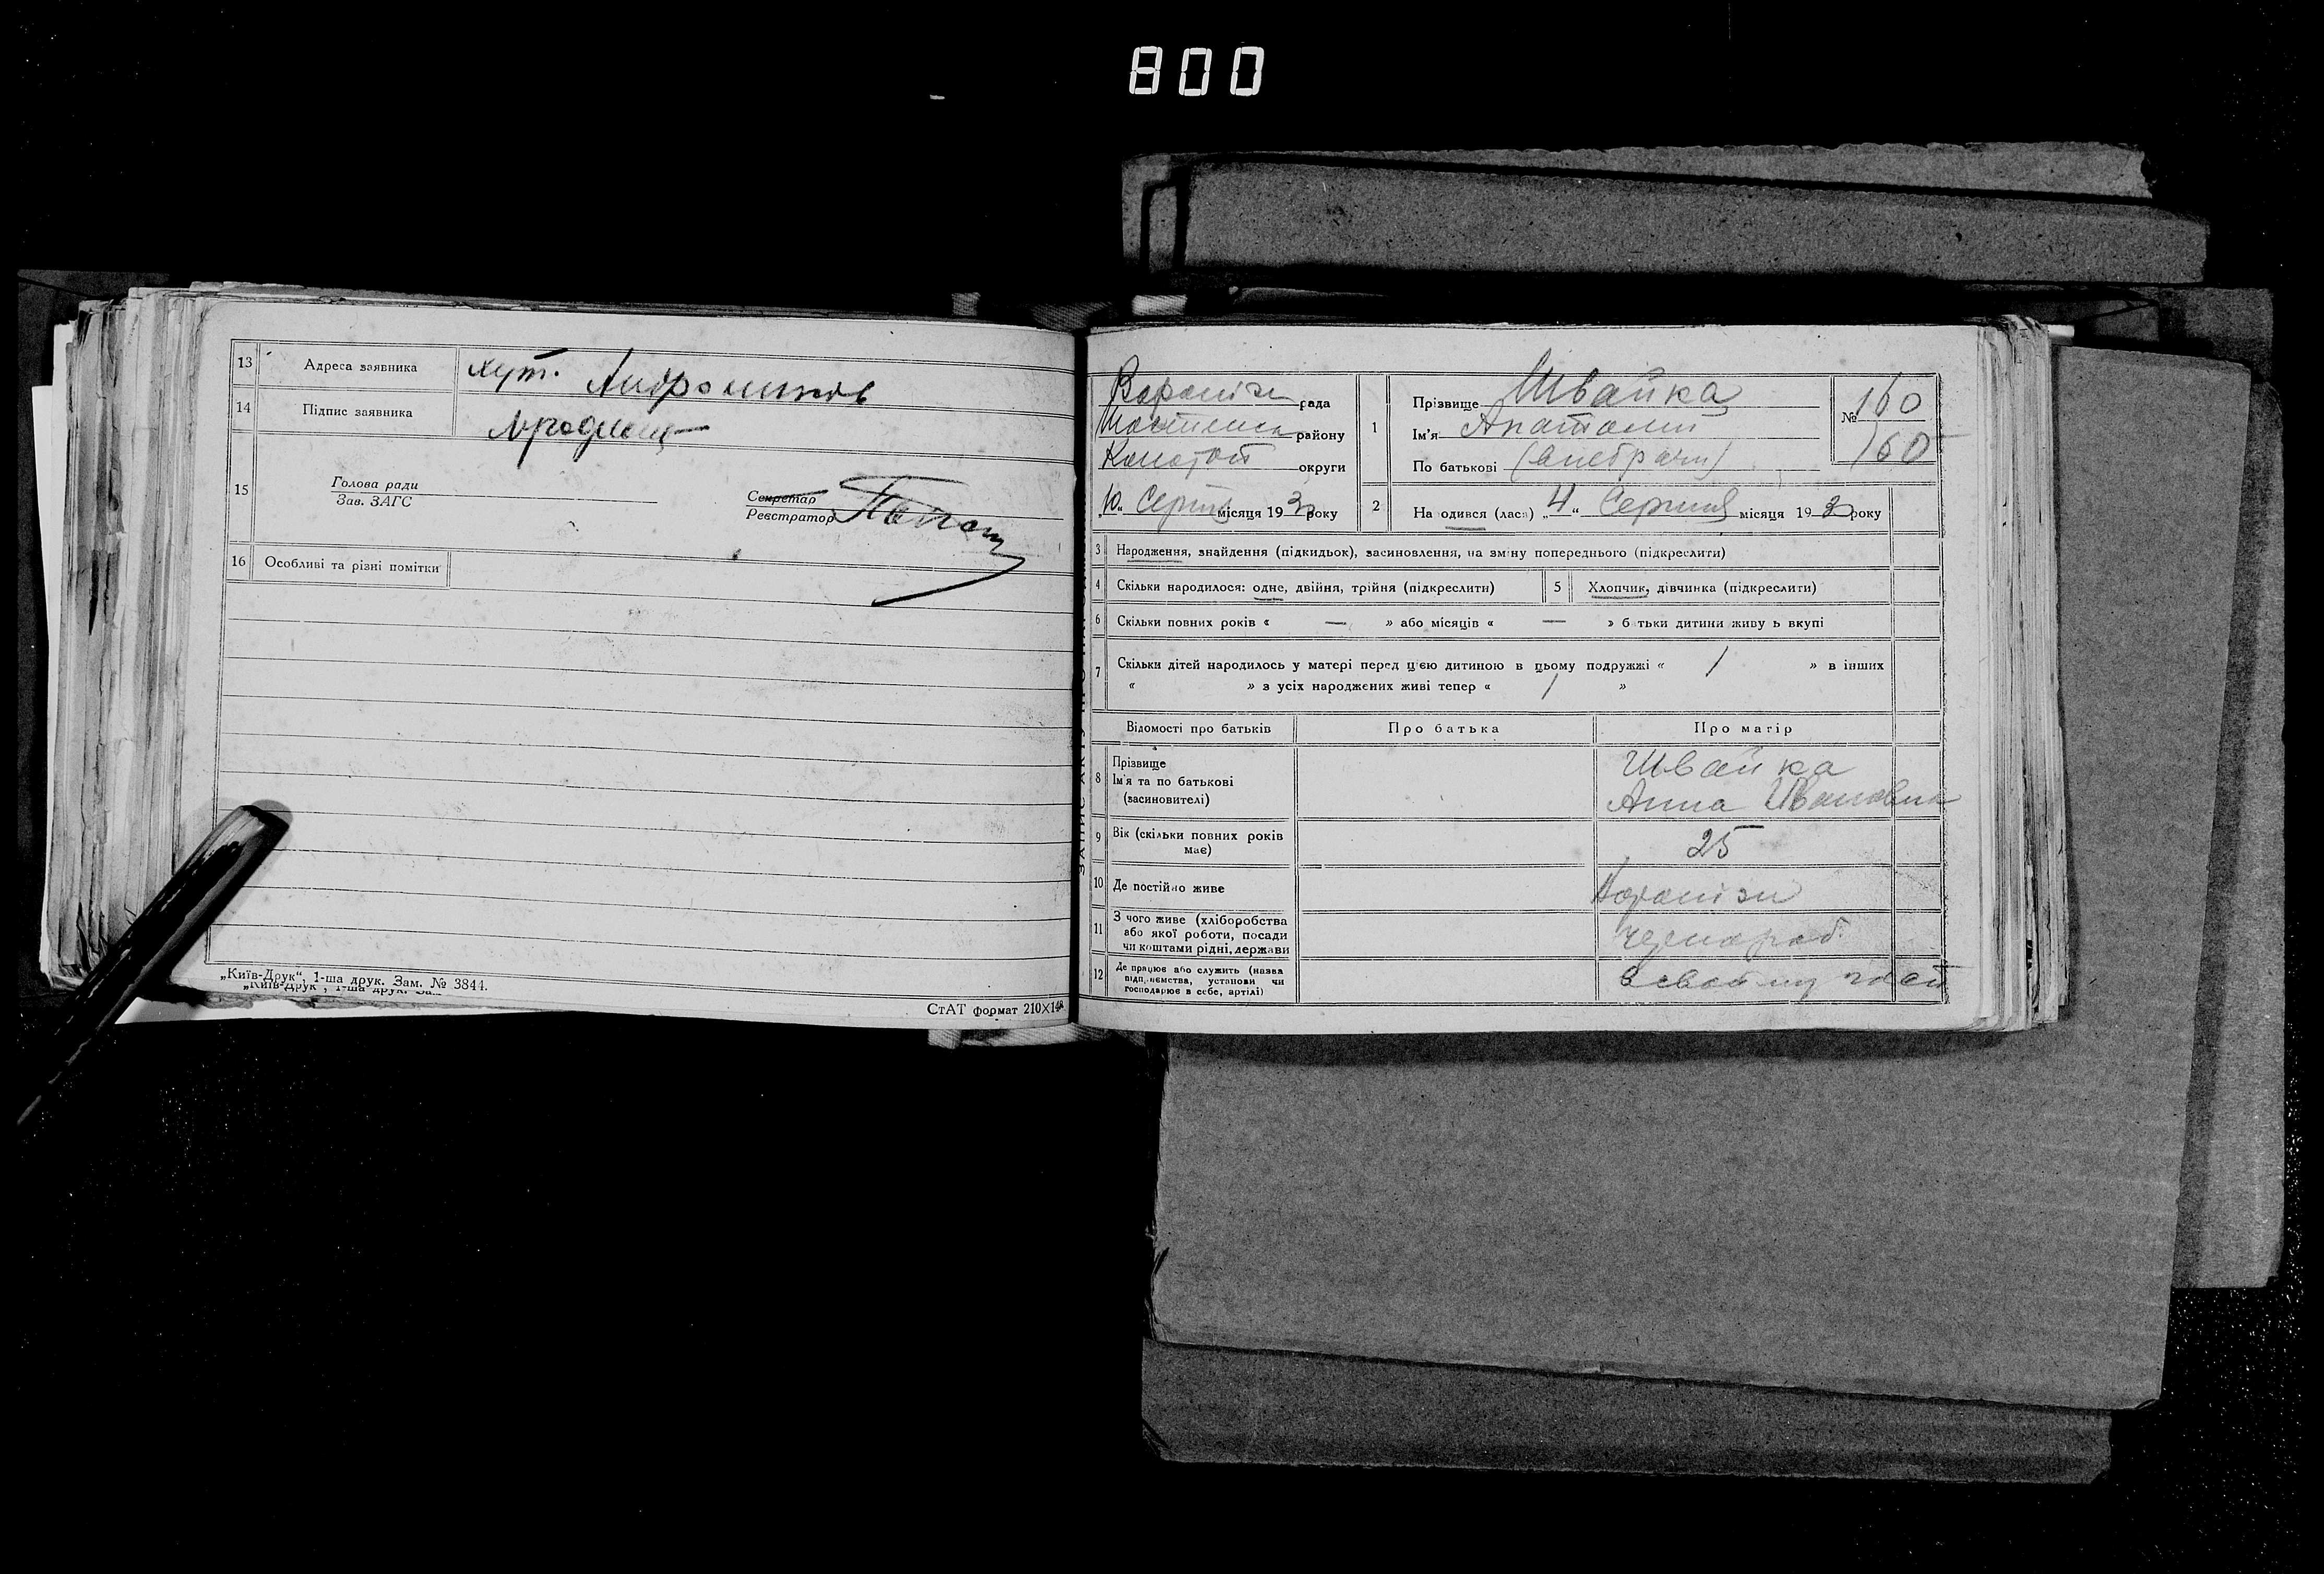 800
13 Адреса заявника хут.
14 Підпис заявника
15 Голова ради
Зав. ЗАГС
Секретар
Реєстратор
16 Особливі та різні помітки
„Київ-Друк“, 1-ша друк. Зам. № 3844.
СтАТ формат 210×148
рада
району
округи
„10“ Серпня місяця 1930 року
1 Прізвище Швайка
Ім'я Анатолий
По батькові
№ 160
160
2 На одився (лась) „4“ Серпня місяця 1930 року
3 Народження, знайдення (підкидьок), засиновлення, на зміну попереднього (підкреслити)
4 Скільки народилося: одне, двійня, трійня (підкреслити)
5 Хлопчик, дівчинка (підкреслити)
6 Скільки повних років « — » або місяців « — » б тьки дитини живу ь вкупі
7 Скільки дітей народилось у матері перед цією дитиною в цьому подружжі « / » в інших
« » з усіх народжених живі тепер « / »
Відомості про батьків
Про батька
Про матір
8 Прізвище
Ім'я та по батькові
(засиновителі)
Швайка
Анна Ивановна
9 Вік (скільки повних років
має)
25
10 Де постійно живе
11 З чого живе (хліборобства
або якої роботи, посади
чи коштами рідні, держави
чернораб.
12 Де працює або служить (назва
підприємства, установи чи
господарює в себе, артілі)